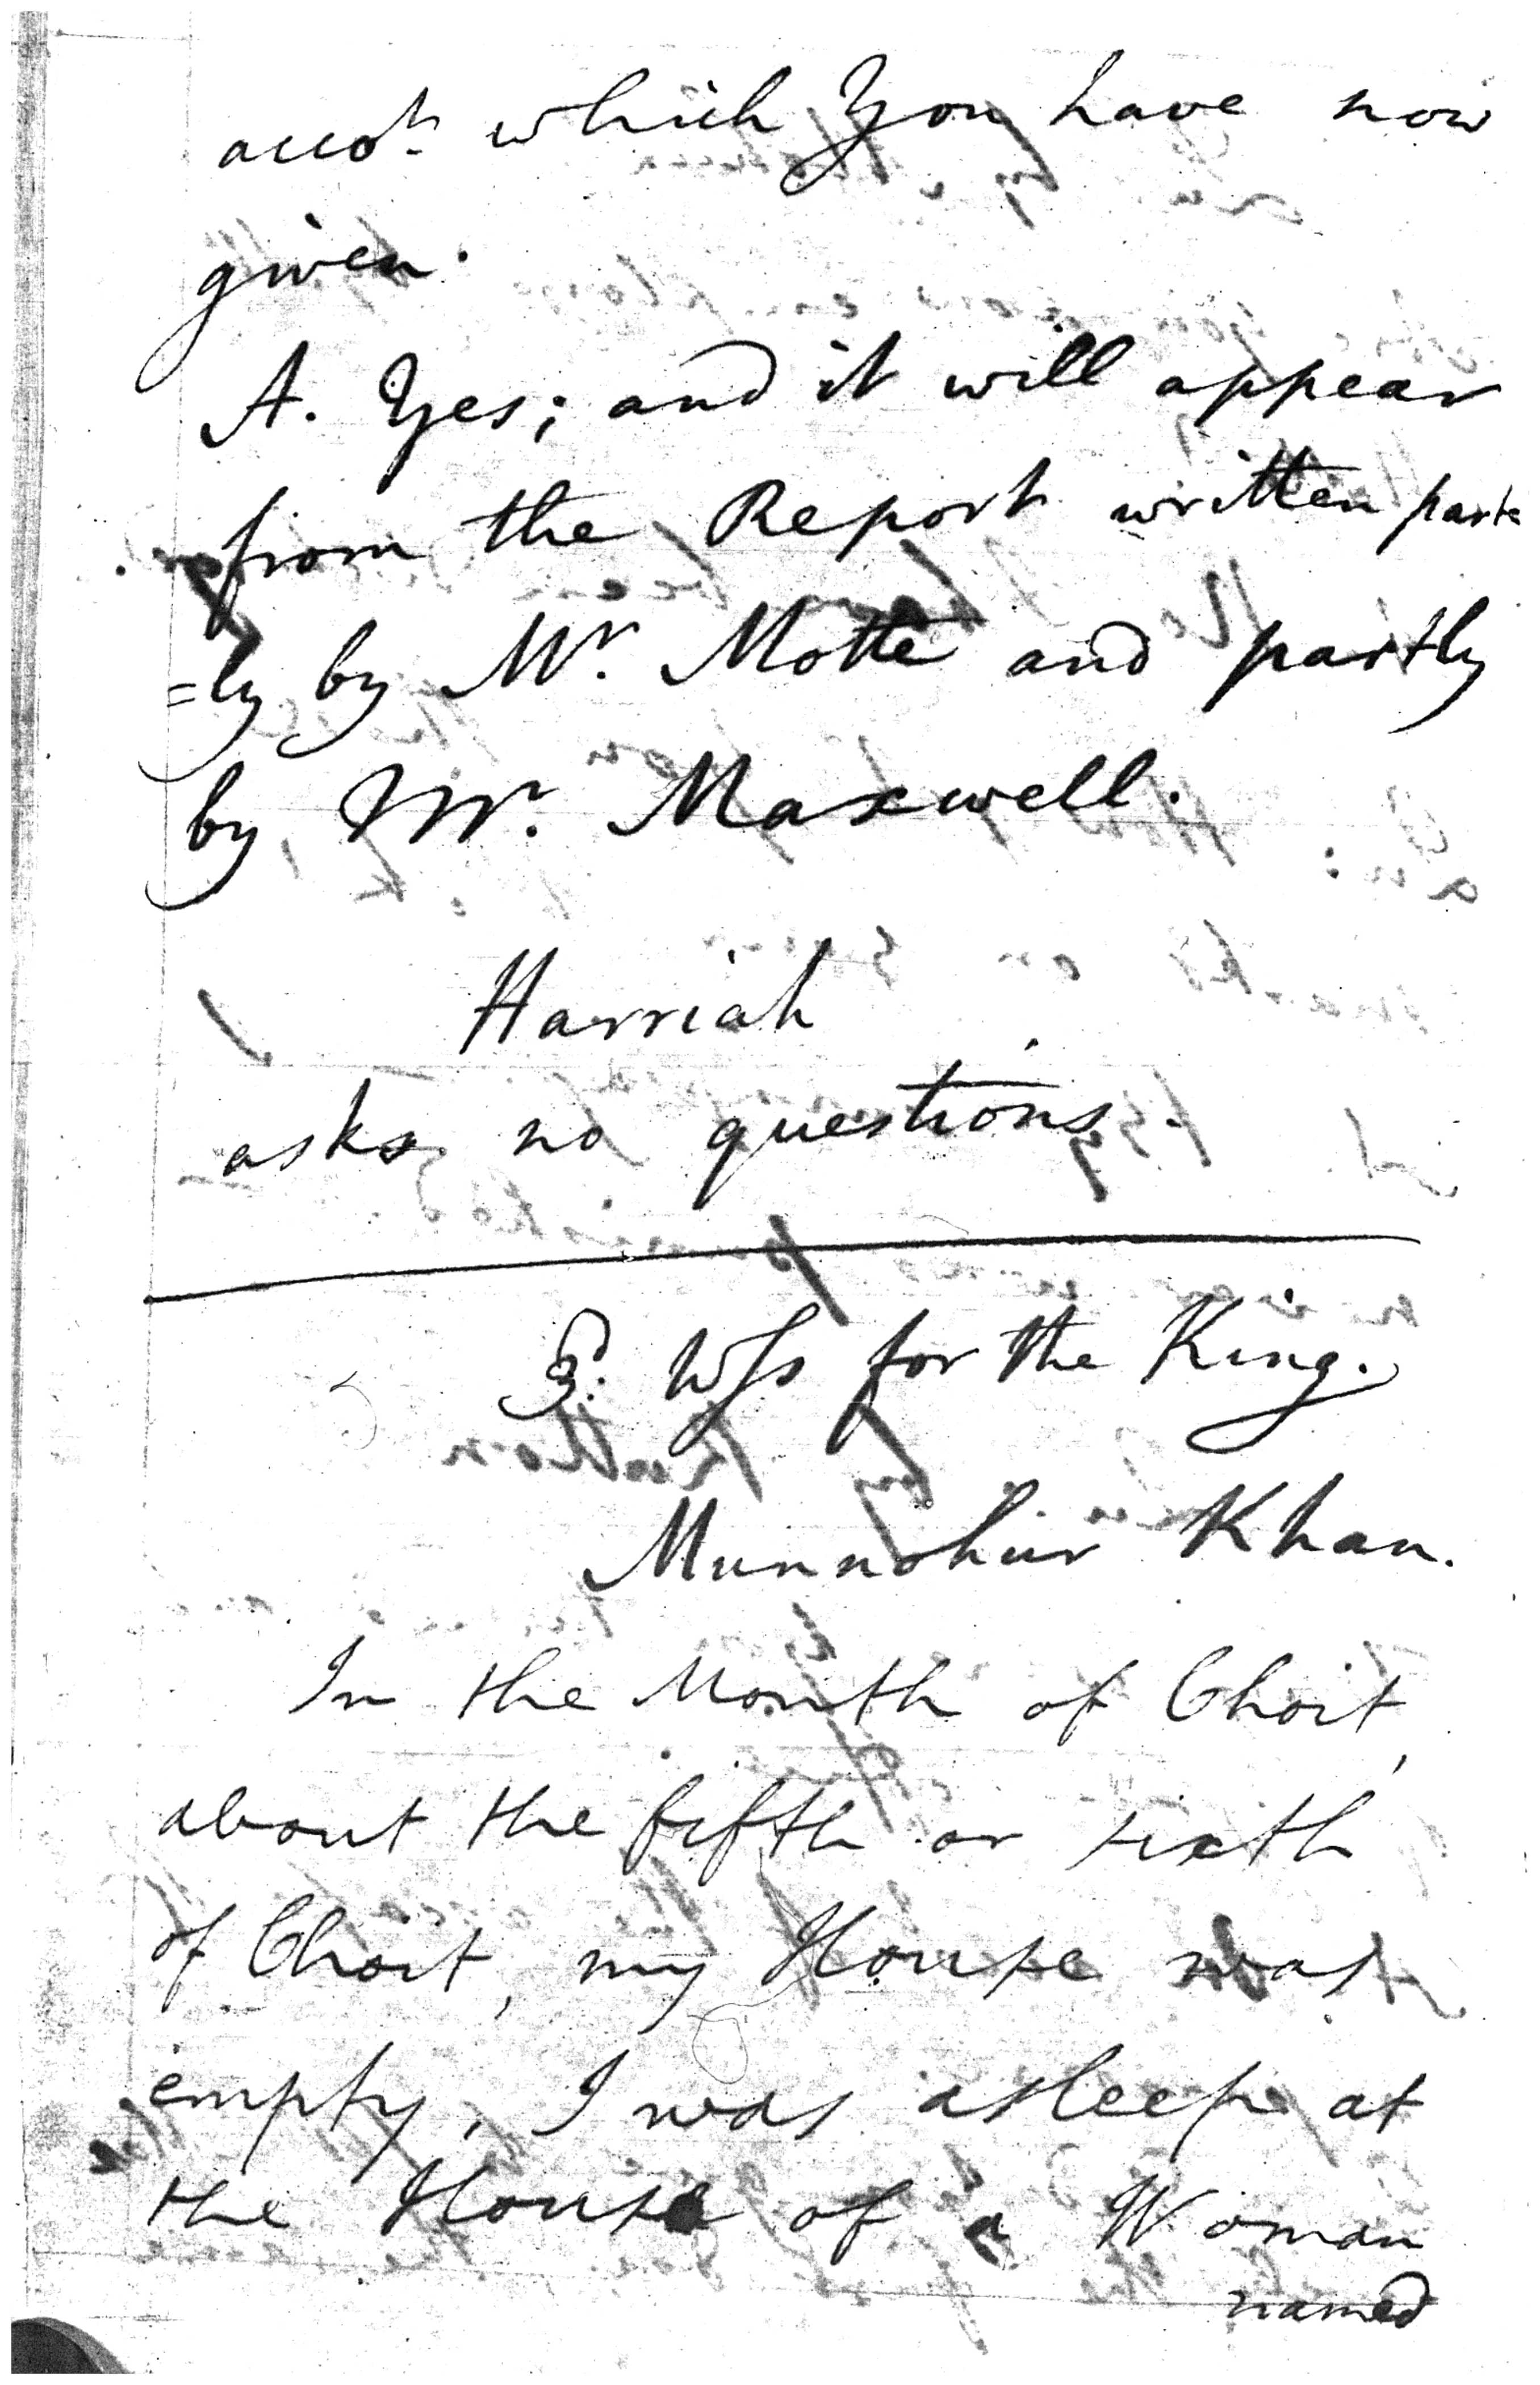 accot. which You have now
given.
A. Yes; and it will appear
from the Report written part=
=ly by Mr. Motte and partly
by Mr. Maxwell.
Harriah
asks no questions.
3d. Wss for the King.
Munnohur Khan.
In the Month of Choit,
about the fifth or sixth
of Choit, my House was
empty, I was asleep at
the House of a Woman
named